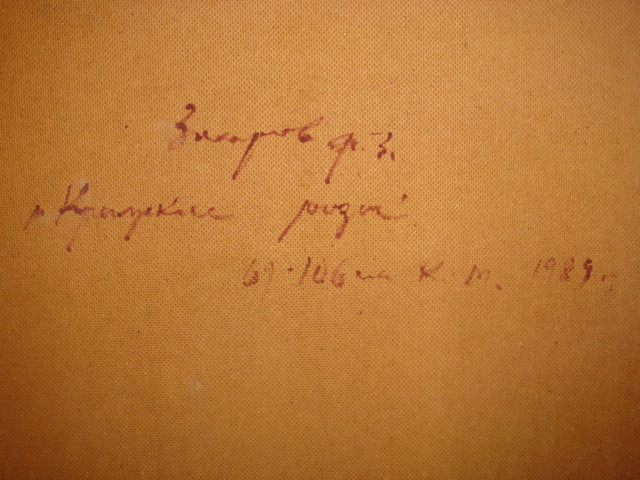 Захаров Ф. З.
"Крымские розы"
69·106 см К. М. 1989 г.